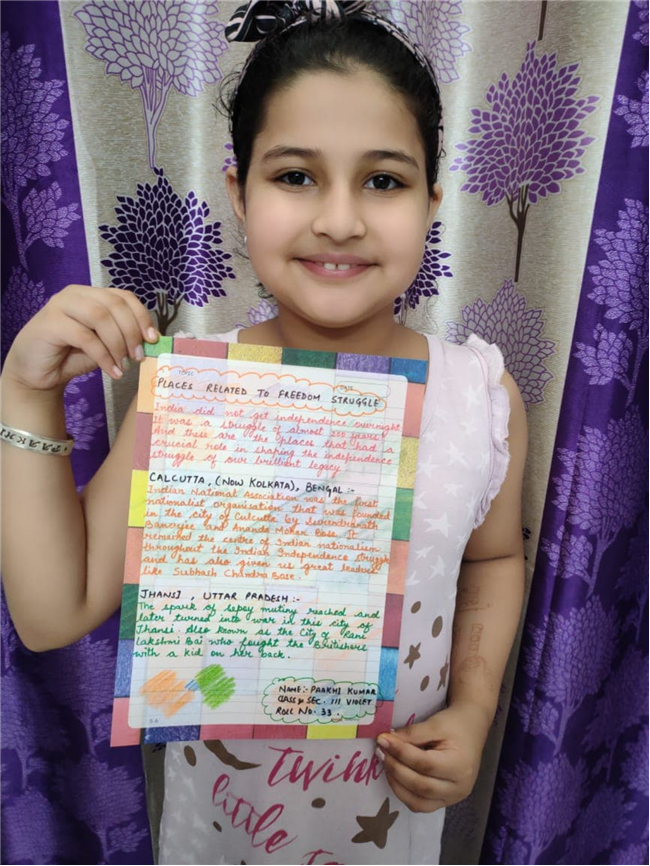 TOPIC DATE
PLACES RELATED TO FREEDOM STRUGGLE
India did not get independence overnight
It was a struggle of almost 200 years!
And these are the places that had a
crucial role in shaping the independence
struggle of our brilliant legacy
CALCUTTA, (NOW KOLKATA), BENGAL :-
Indian National Association was the first
nationalist organisation that was founded
in the city of Culcutta by Surendranath
Banerjee and Ananda Mohan Bose. It
remained the centre of Indian nationalism
throughout the Indian Independence struggle
and has also given us great leaders
like Subhash Chandra Bose.
JHANSI, UTTAR PRADESH :-
The spark of sepoy mutiny reached and
later turned into war in this city of
Jhansi. Also known as the City of Rani
Lakshmi Bai who fought the Britishers
with a kid on her back.
NAME:- PAAKHI KUMAR
CLASS & SEC. III VIOLET
ROLL NO. 33.
PAAKHI
twink
little